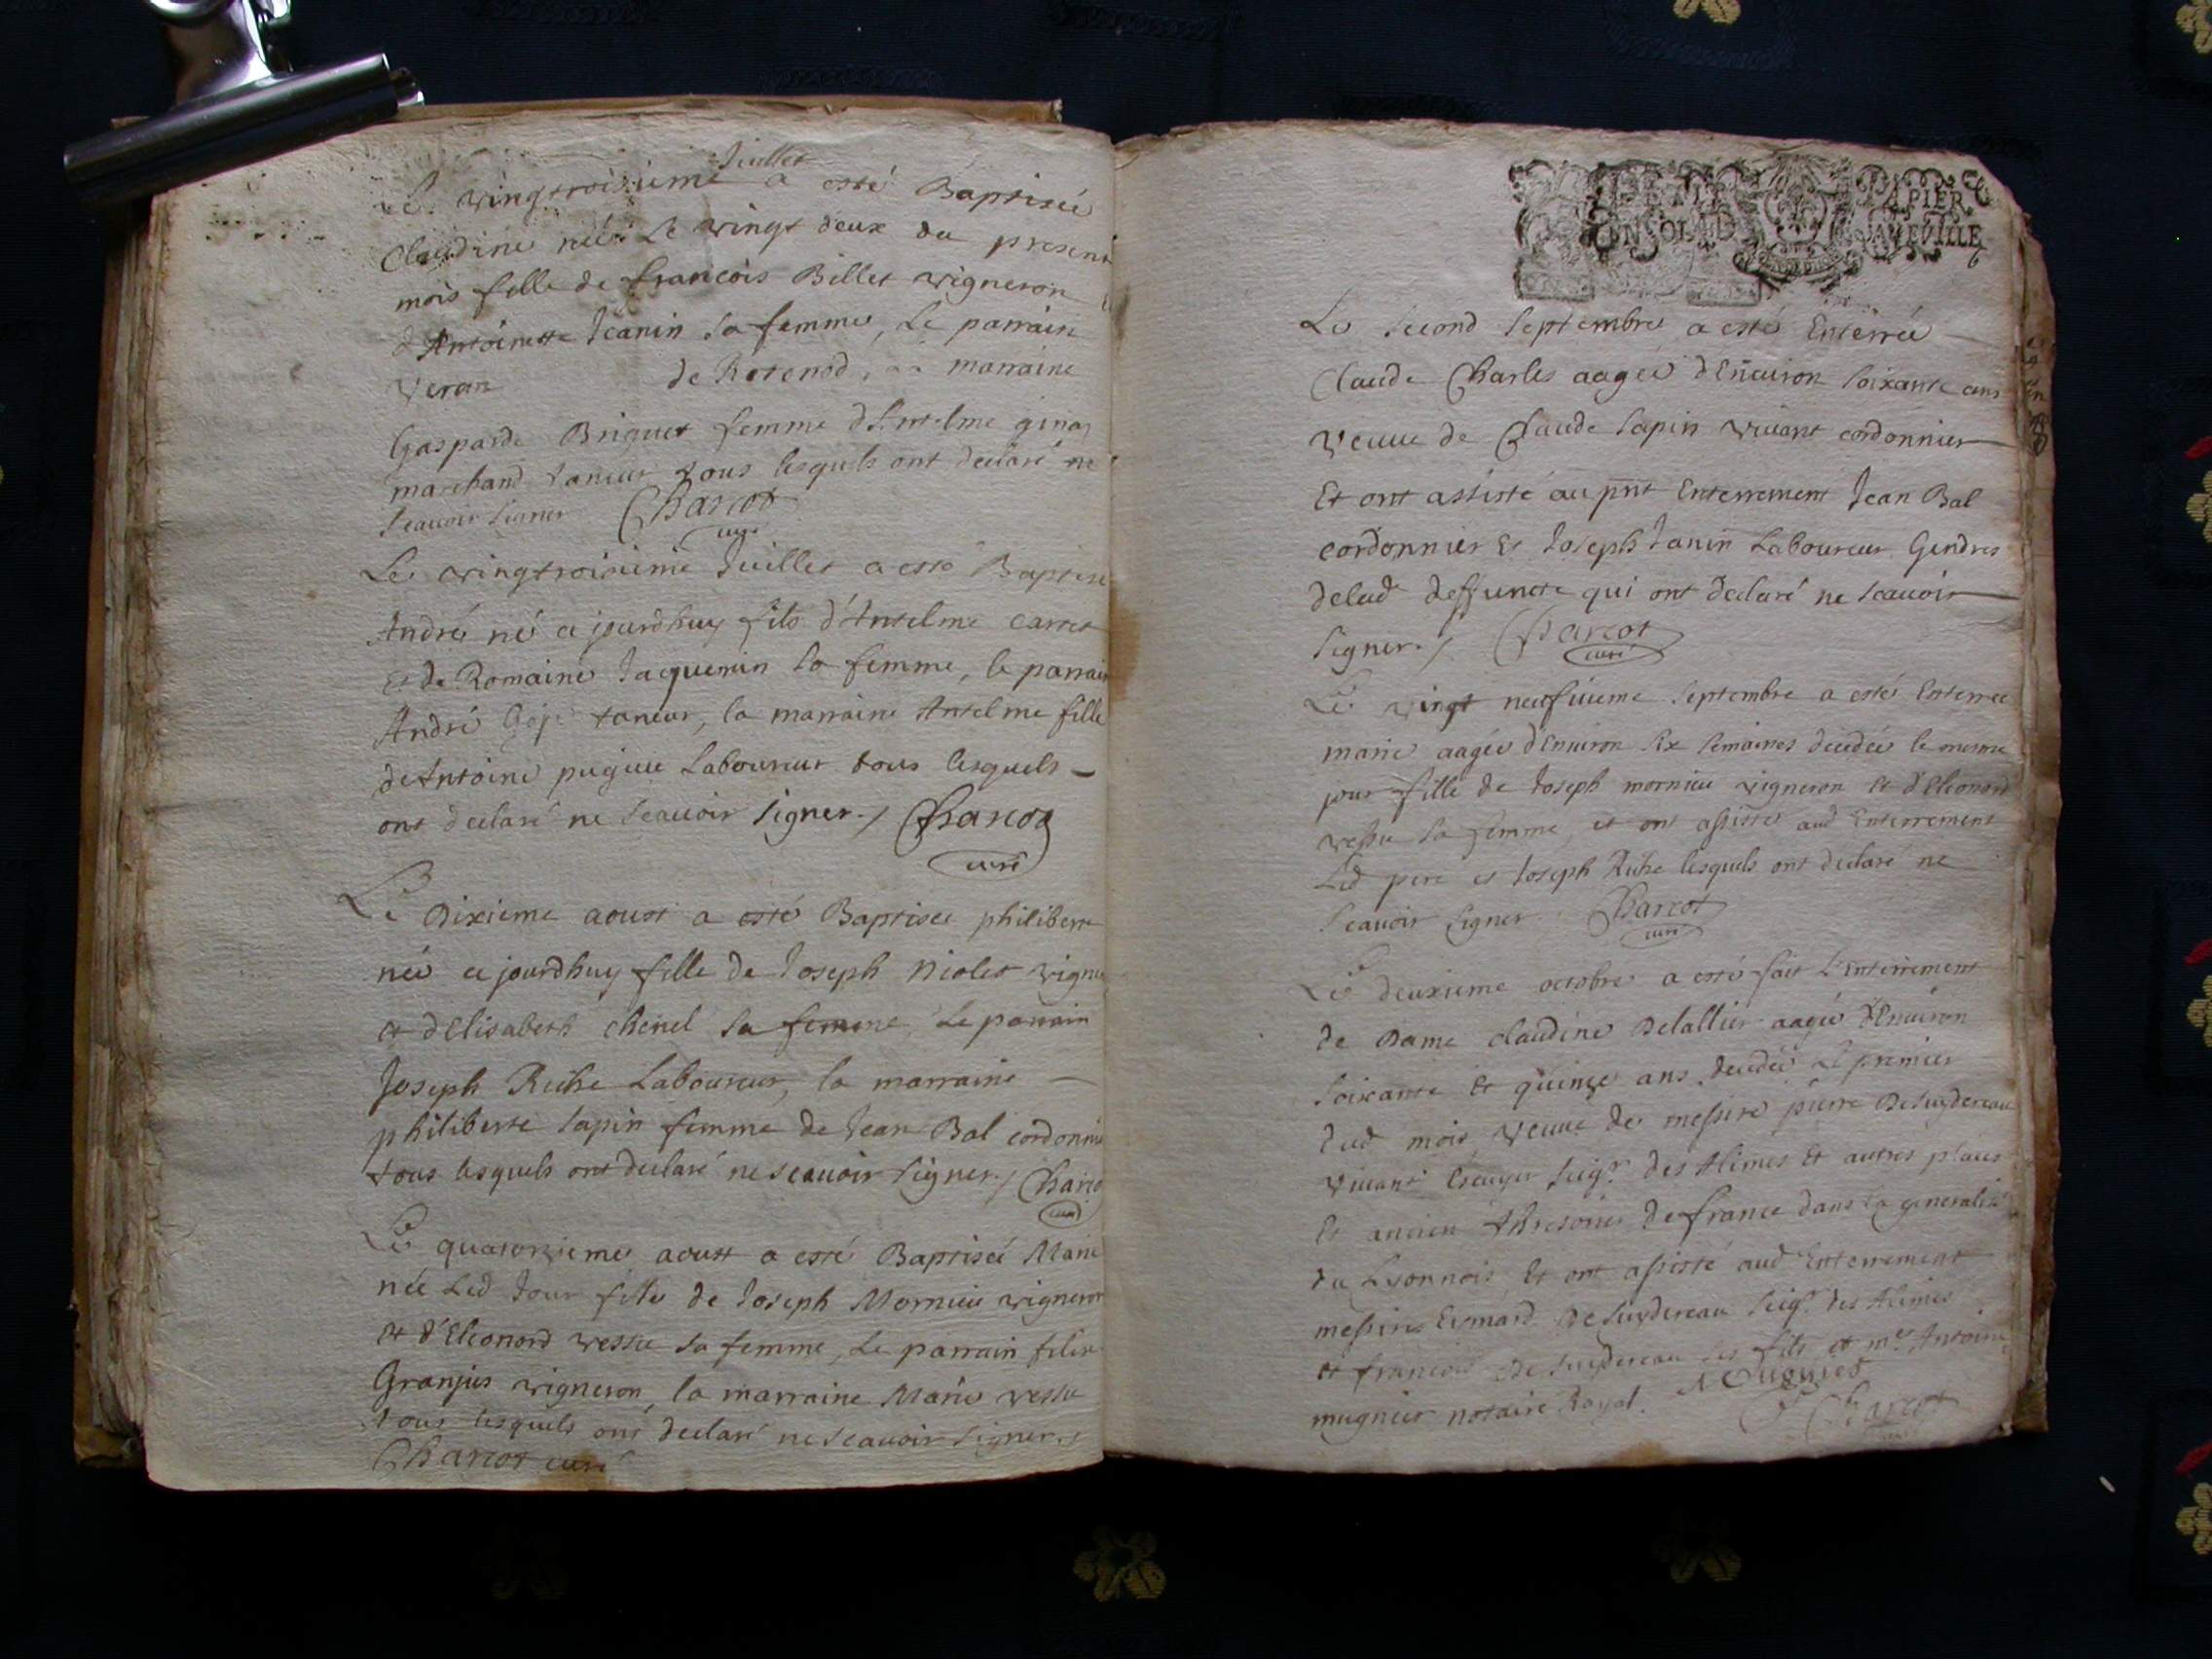 Juillet
Le vingtroisieme a esté Baptisée
Claudine née le vingt deux du present
mois fille de francois Billet vigneron
d'Antoinette Jeanin sa femme, Le parrain
Veran de Rotenod, marraine
Gasparde Briguet femme d'Antelme
marchand taneur tous lesquels ont declaré ne
scavoir signer Charcot
curé
Le vingtroisieme Juillet a esté Baptisé
André né ce jourdhuy fils d'Antelme Carret
Et de Romaine Jaquemin sa femme, le parrain
André taneur, la marraine Antelme fille
de Antoine pugieu Laboureur tous lesquels
ont declaré ne scavoir signer./ Charcot
curé
Le Dixieme aoust a esté Baptisée philiberte
née ce jourdhuy fille de Joseph Niolet vigne
et d'Elisabeth chenel sa femme Le parrain
Joseph Riche Laboureur, la marraine
philiberte sapin femme de Jean Bal cordonnie
tous lesquels ont declaré ne scavoir signer./ Charco
curé
Le quatorzieme aoust a esté Baptiseé Marie
née Led Jour fille de Joseph Mornieu vigneron
et d'Eleonord vessu sa femme, Le parrain
Granjus vigneron, la marraine Marie vessu
tous lesquels ont declaré ne scavoir signer./
Charcot curé
PAPIER
Le second septembre a esté Enterrée
Claude Charles aagée d'Enuiron soixante ans
veuue de Claude sapin viuant cordonnier
Et ont assisté au pnt Enterrement Jean Bal
cordonnier Et Joseph Janin Laboureur Gendres
delad deffuncte qui ont declaré ne scauoir
signer./ Charcot
curé
Le vingt neufuieme septembre a esté Enterree
marie aagée d'Enuiron six semaines decedée le mesme
jour fille de Joseph mornieu vigneron et d'Eleonord
vessu sa femme, et ont assisté aud Enterrement
Led pere et Joseph Riche lesquels ont declaré ne
scauoir signer Charcot
curé
Le deuxieme octobre a esté fait L'Enterrement
de Dame claudine Delallier aagée d'Enuiron
soixante Et quinze ans, decedée Le premier
dud mois, veuue de messire pierre De Suydereau
viuant Escuyer seigr. des Alimes Et autres places
Et ancien thresorier de france dans la generalité
du Lyonnois Et ont assisté aud Enterrement
messire Eymard De Suydereau seigr. des Alimes
et francois De Suydereau ses fils et me. Antoine
mugnier notaire Royal.
Charcot